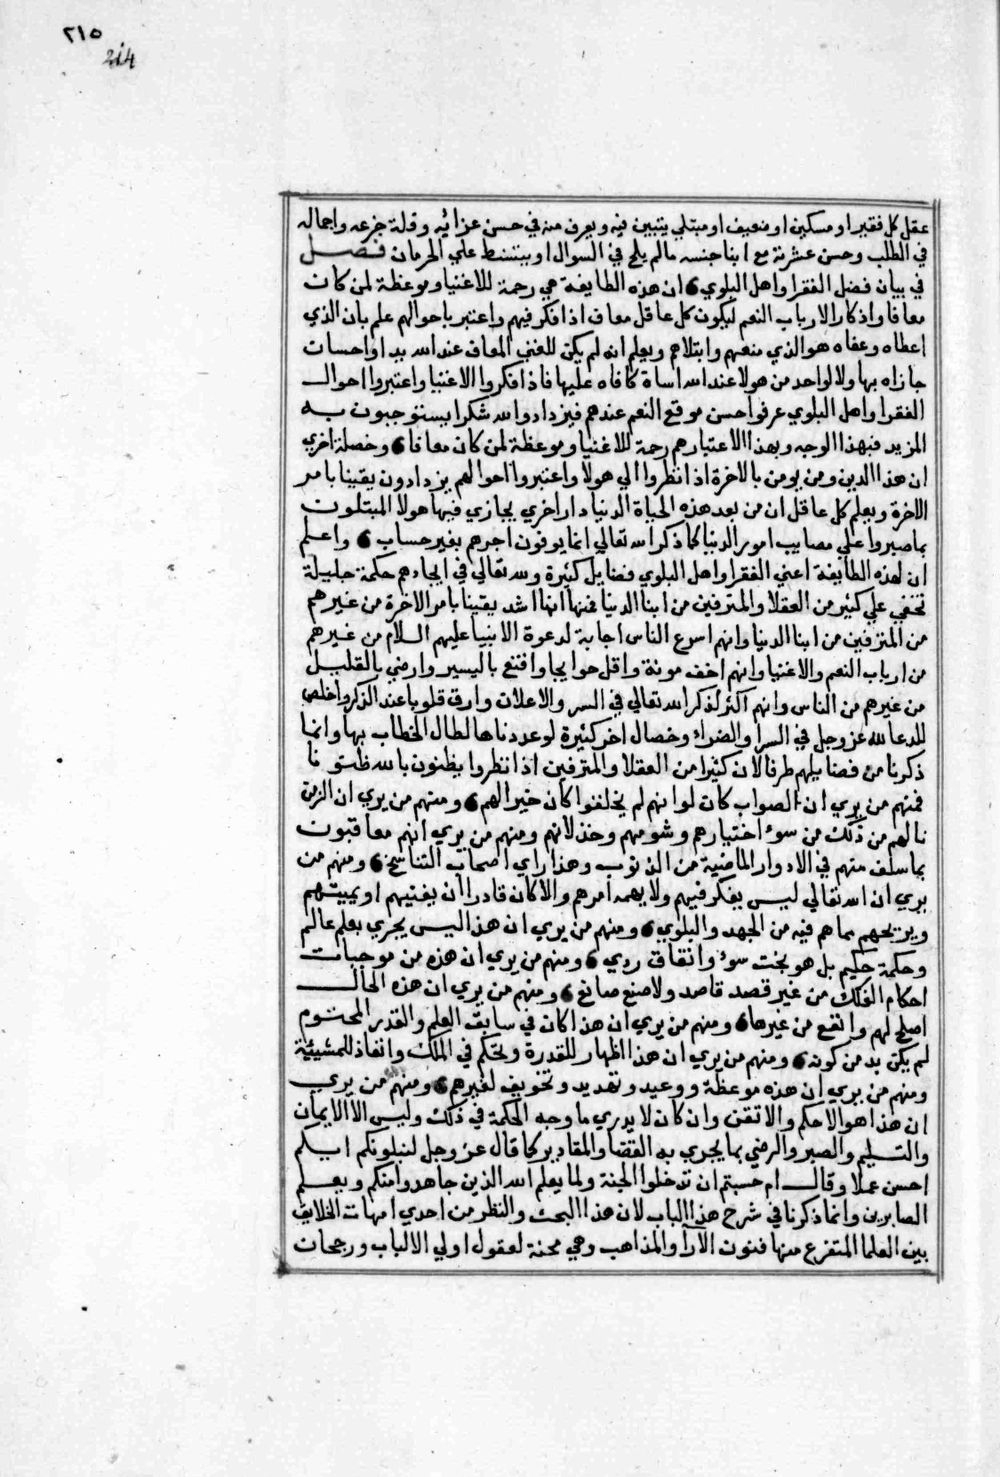 ٢١٥
214
عقل كل فقير او مسكين او ضعيف او مبتلي يتبين فيه ويعرف منه في حسن عزائه وقلة جزعه واجماله
في الطلب وحسن عشرته مع ابنا جنسه مالم يلح في السوال او يتسنط علي الحرمان فصل
في بيان فضل الفقرا واهل البلوي 6 ان هذه الطايفة هي رحمة للاغنيا وموعظة لمن كان
معافا واذكار الارباب النعم ليكون كل عاقل معاف اذا فكر فيهم واعتبر باحوالهم علم بان الذي
اعطاه وعفاه هو الذي منعهم وابتلاهم ويعلم انه لم يكن للغني المعاف عند الله يد او احسان
جازاه بها ولا لواحد من هولا عند الله اساة كافاه عليها فاذا فكروا الاغنيا واعتبروا احوال
الفقرا واهل البلوي عرفوا حسن موقع النعم عندهم فيزدادوا لله شكرا يستوجبون به
المزيد فبهذا الوجه وبهذا الاعتبار هم رحمة للاغنيا وموعظة لمن كان معافا 6 وخصلة اخري
ان هذا الدين ومن يومن بالاخرة اذا نظروا الي هولا واعتبروا احوالهم يزدادون يقينا بامر
الاخرة ويعلم كل عاقل ان من بعد هذه الحياة الدنيا دار اخري يجازي فيها هولا المبتلون
بما صبروا علي مصايب امور الدنيا كما ذكر الله تعالي انما يوفون اجرهم بغير حساب 6 واعلم
ان لهذه الطايفة اعني الفقرا واهل البلوي فضايل كثيرة ولله تعالي في ايجادهم حكمة جليلة
تخفي علي كثير من العقلا والمترفين من ابنا الدنيا فمنها انها اشد يقينا بامر الاخرة من غيرهم
من المترفين من ابنا الدنيا وانهم اسرع الناس اجابة لدعوة الانبيا عليهم السلام من غيرهم
من ارباب النعم والاغنيا وانهم اخف مونة واقل حوايجا واقنع باليسير وارضي بالقليل
من غيرهم من الناس وانهم اكثر لذكر الله تعالي في السر والاعلان وارق قلوبا عند الذكر واخلص
للدعا لله عز وجل في السرا والضراء وخصال اخر كثيرة لو عددناها لطال الخطاب بها وانما
ذكرنا من فضايلهم طرفا لان كثيرا من العقلا والمترفين اذا نظروا يظنون بالله ظنونا
فمنهم من يري ان الصواب كان لو انهم لم يخلقوا كان خيرا لهم 6 ومنهم من يري ان الذي
نالهم من ذلك من سوء اختيارهم وشومهم وخذلانهم ومنهم من يري انهم معاقبون
بما سلف منهم في الادوار الماضية من الذنوب وهذا راي اصحاب التناسخ 6 ومنهم من
يري ان الله تعالي ليس يفكر فيهم ولا يهمه امرهم والا كان قادرا ان يغنيهم او يميتهم
ويريحهم مما هم فيه من الجهد والبلوي 6 ومنهم من يري ان هذا ليس يجري بعلم عالم
وحكمة حكيم بل هو بخت سوء واتفاق ردي 6 ومنهم من يري ان هذه من موجبات
احكام الفلك من غير قصد قاصد ولا صنع صانع 6 ومنهم من يري ان هذه الحال
اصلح لهم وانفع من غيرها 6 ومنهم من يري ان هذا كان في سابق العلم والقدر المحتوم
لم يكن بد من كونه 6 ومنهم من يري ان هذا اظهار للقدرة وتحكم في الملك وانفاذ للمشيئة
ومنهم من يري ان هذه موعظة ووعيد وتهديد وتخويف لغيرهم 6 ومنهم من يري
ان هذا هو الاحكم والاتقن وان كان لا يدري ما وجه الحكمة في ذلك وليس الا الايمان
والتسليم والصبر والرضي بما يجري به القضا والمقادير كما قال عز وجل لنبلونكم ايكم
احسن عملا وقال ام حسبتم ان تدخلوا الجنة ولما يعلم الله الذين جاهدوا منكم ويعلم
الصابرين وانما ذكرنا في شرح هذا الباب لان هذا البحث والنظر من احدي امهات الخلاف
بين العلما المتفرع منها فنون الآرا والمذاهب وهي محنة لعقول اولي الالباب ورجحان